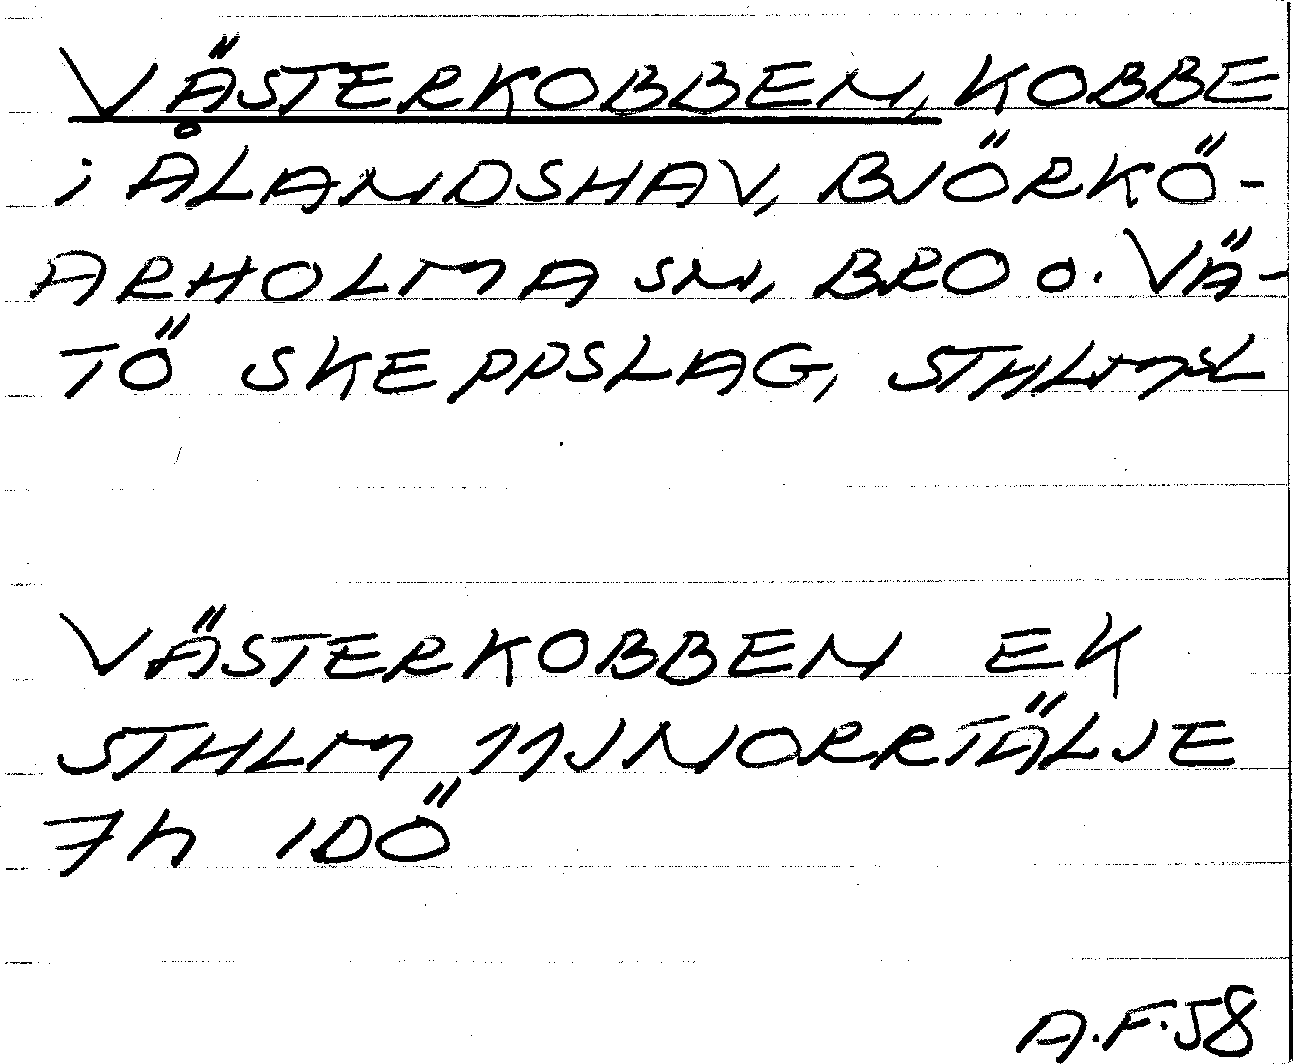 VÄSTERKOBBEN, KOBBE
i ÅLANDSHAV, BJÖRKÖ-
ARHOLMA SN, BRO o. VÄ-
TÖ SKEPPSLAG, STHLMSL
VÄSTERKOBBEN EK
STHLM 11J NORRTÄLJE
7h IDÖ
A.F.58